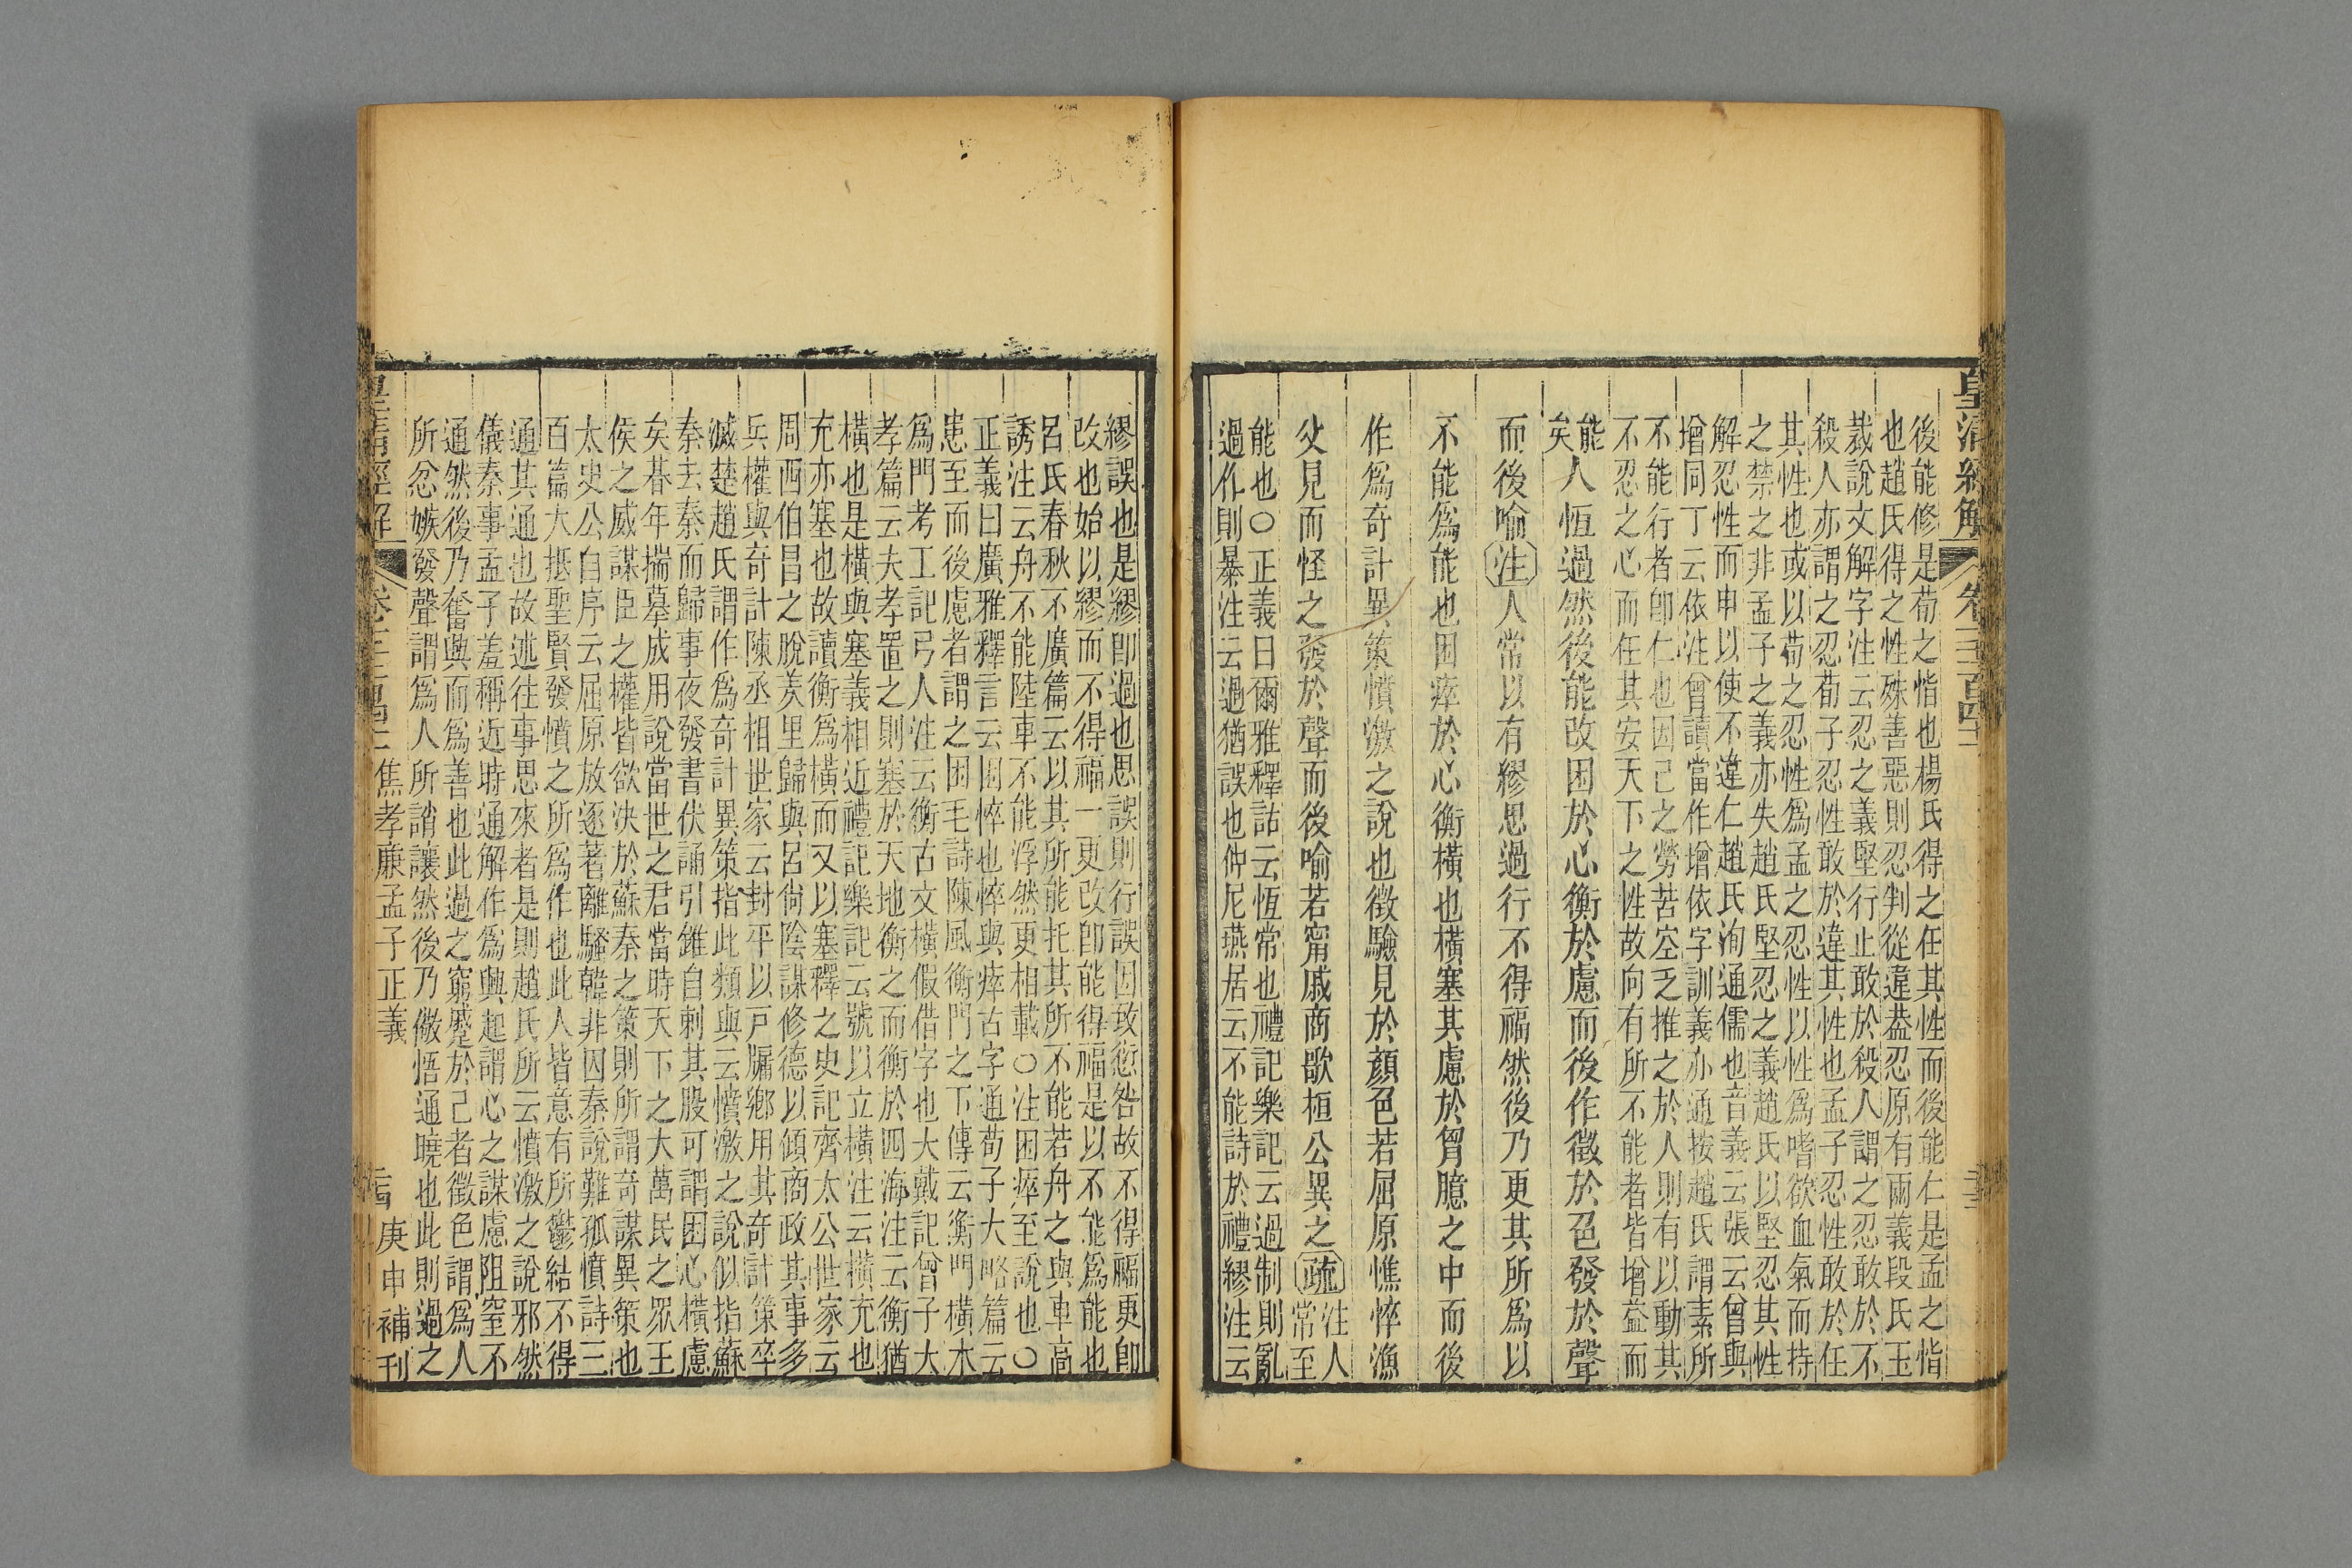 皇清經解 卷一千百四十二
後能修是荀之恉也楊氏得之任其性而後能仁是孟之恉
也趙氏得之性殊善惡則忍判從違葢忍原有兩義段氏玉
裁說文解字注云忍之義堅行止敢於殺人謂之忍敢於不
殺人亦謂之忍荀子忍性敢於違其性也孟子忍性敢於任
其性也或以荀之忍性爲孟之忍性以性爲嗜欲血氣而持
之禁之非孟子之義亦失趙氏堅忍之義趙氏以堅忍其性
解忍性而申以使不違仁趙氏洵通儒也音義云張云曾與
增同丁云依注曾讀當作增依字訓義亦通按趙氏謂素所
不能行者卽仁也因己之勞苦空乏推之於人則有以動其
不忍之心而任其安天下之性故向有所不能者皆增益而
能
矣
人恆過然後能改困於心衡於慮而後作徵於色發於聲
而後喻注人常以有繆思過行不得福然後乃更其所爲以
不能爲能也困瘁於心衡橫也橫塞其慮於胷臆之中而後
作爲奇計異策憤激之說也徵驗見於顏色若屈原憔悴漁
父見而怪之發於聲而後喻若甯戚商歌桓公異之疏
注人
常至
能也○正義曰爾雅釋詁云恆常也禮記樂記云過制則亂
過作則暴注云過猶誤也仲尼燕居云不能詩於禮繆注云
繆誤也是繆卽過也思誤則行誤因致愆咎故不得福更卽
改也始以繆而不得福一更改卽能得福是以不能爲能也
呂氏春秋不廣篇云以其所能托其所不能若舟之與車高
誘注云舟不能陸車不能浮然更相載○注困瘁至說也○
正義曰廣雅釋言云困悴也悴與瘁古字通荀子大略篇云
患至而後慮者謂之困毛詩陳風衡門之下傳云衡門橫木
爲門考工記弓人注云衡古文橫假借字也大戴記曾子大
孝篇云夫孝置之則塞於天地衡之而衡於四海注云衡猶
橫也是橫與塞義相近禮記樂記云號以立橫注云橫充也
充亦塞也故讀衡爲橫而又以塞釋之史記齊太公世家云
周西伯昌之脫羑里歸與呂尙陰謀修德以傾商政其事多
兵權與奇計陳丞相世家云封平以戸牖鄉用其奇計策卒
滅楚趙氏謂作爲奇計異策指此類與云憤激之說似指蘇
秦去秦而歸事夜發書伏誦引錐自刺其股可謂困心橫慮
矣朞年揣摹成用說當世之君當時天下之大萬民之眾王
侯之威謀臣之權皆欲決於蘇秦之策則所謂奇謀異策也
太史公自序云屈原放逐著離騷韓非囚秦說難孤憤詩三
百篇大抵聖賢發憤之所爲作也此人皆意有所鬱結不得
通其通也故述往事思來者是則趙氏所云憤激之說邪然
儀秦事孟子羞稱近時通解作爲興起謂心之謀慮阻窒不
通然後乃奮興而爲善也此過之窮蹙於己者徵色謂爲人
所忿嫉發聲謂爲人所誚讓然後乃儆悟通曉也此則過之
焦孝廉孟子正義
庚申補刊